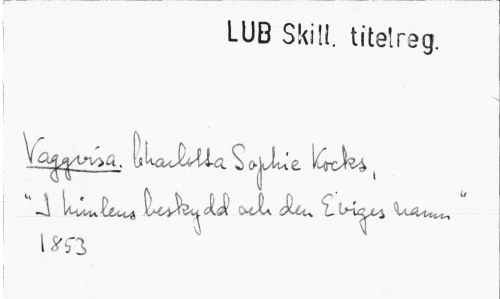 LUB Skill. titelreg.
Vaggvisa. Charlotta Sophie Kocks,
"I himlens beskydd och den Eviges namn"
1853